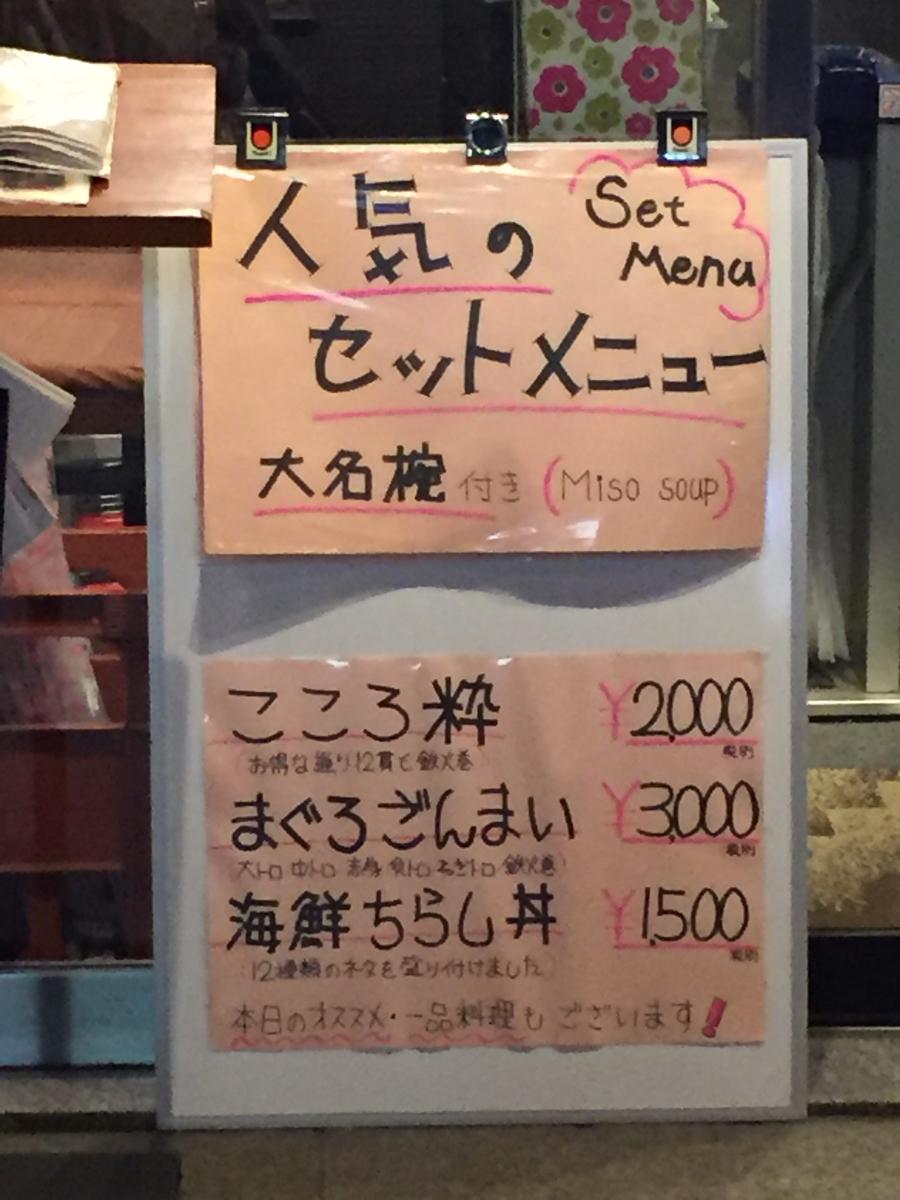 人気の
Set
Menu
セットメニュー
大名椀付き (Miso soup)
こころ粋 ¥2,000
税別
お得な握り12貫と鉄火巻
まぐろごんまい ¥3,000
税別
大トロ 中トロ 赤身 炙トロ ねぎトロ 鉄火巻
海鮮ちらし丼 ¥1,500
税別
12種類のネタを盛り付けました
本日のオススメ・一品料理もございます!